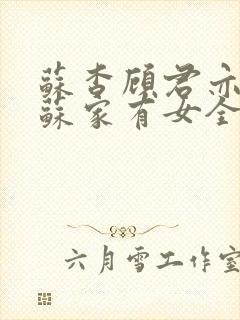 蘇杏顾君亦
蘇家有女全
六月雪工作室